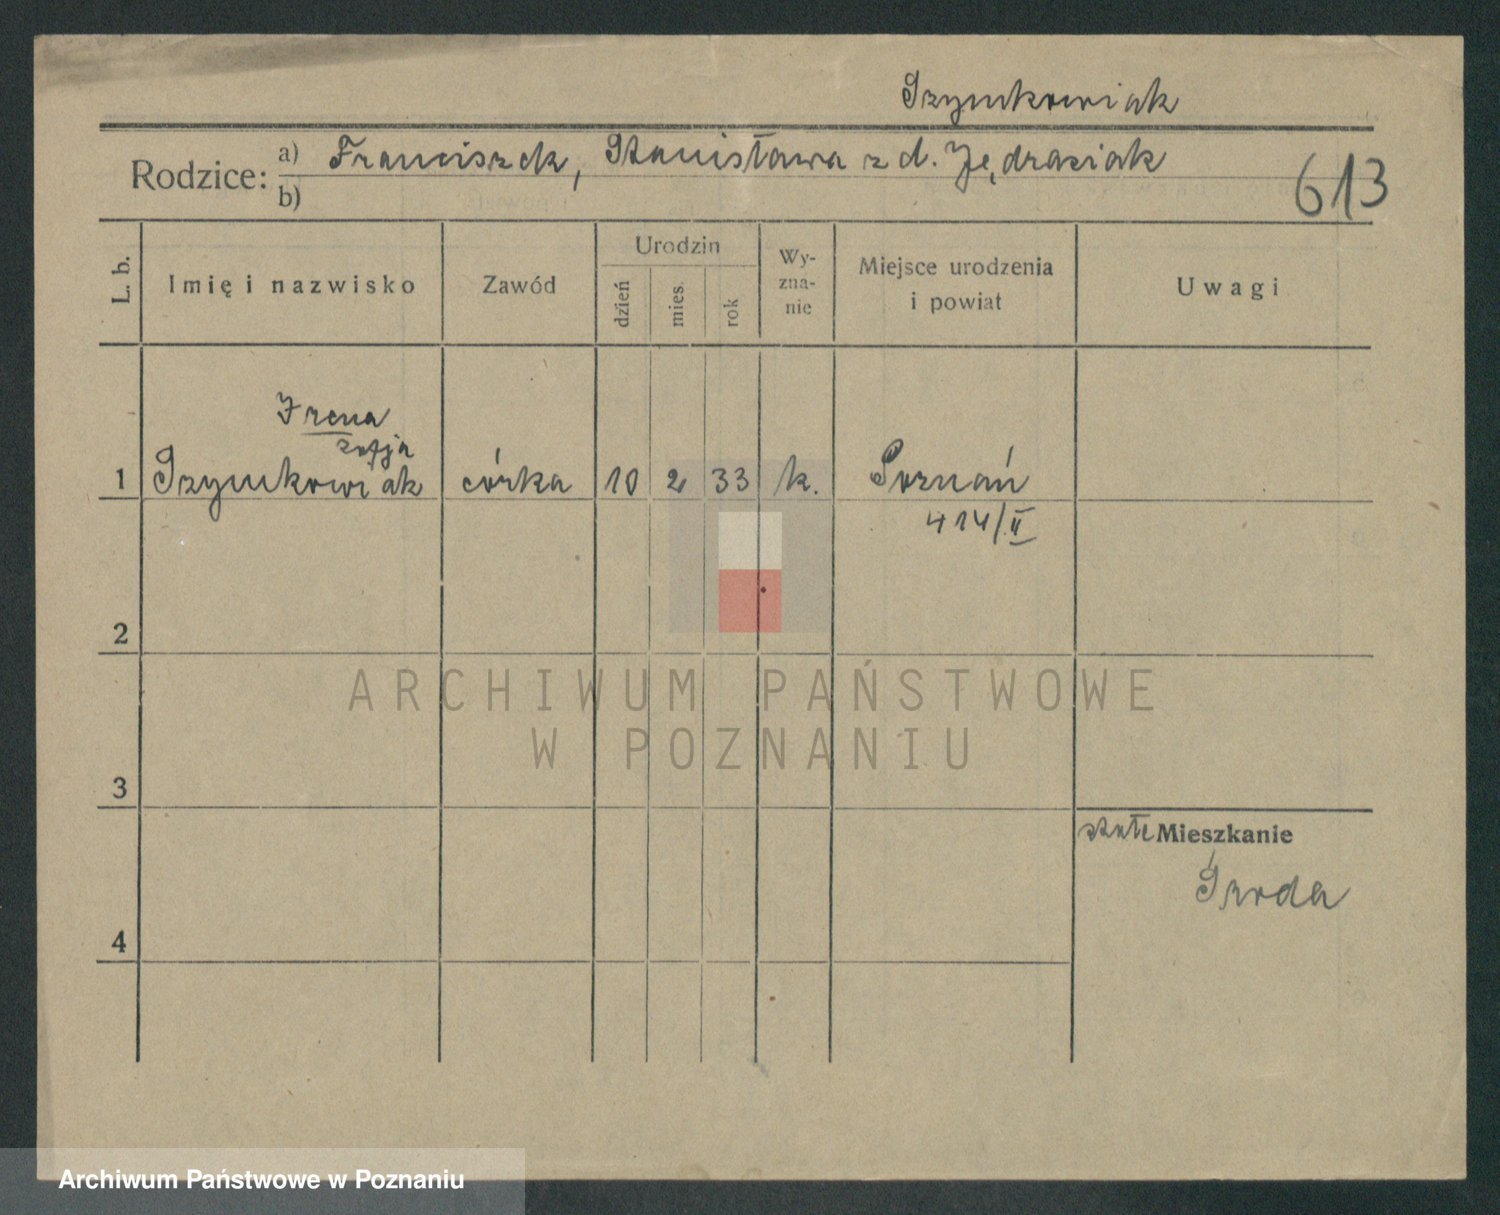 Szymkowiak
Rodzice: a) Franciszek, Stanisława z d. Jędrasiak
b)
613
L. b. Imię i nazwisko Zawód Urodzin dzień mies. rok Wy-zna-nie Miejsce urodzenia i powiat Uwagi
Irena
Zofja
1 Szymkowiak córka 10 2 33 k. Poznań
414/II
2
ARCHIWUM PAŃSTWOWE
W POZNANIU
3
stałe Mieszkanie
Środa
4
Archiwum Państwowe w Poznaniu